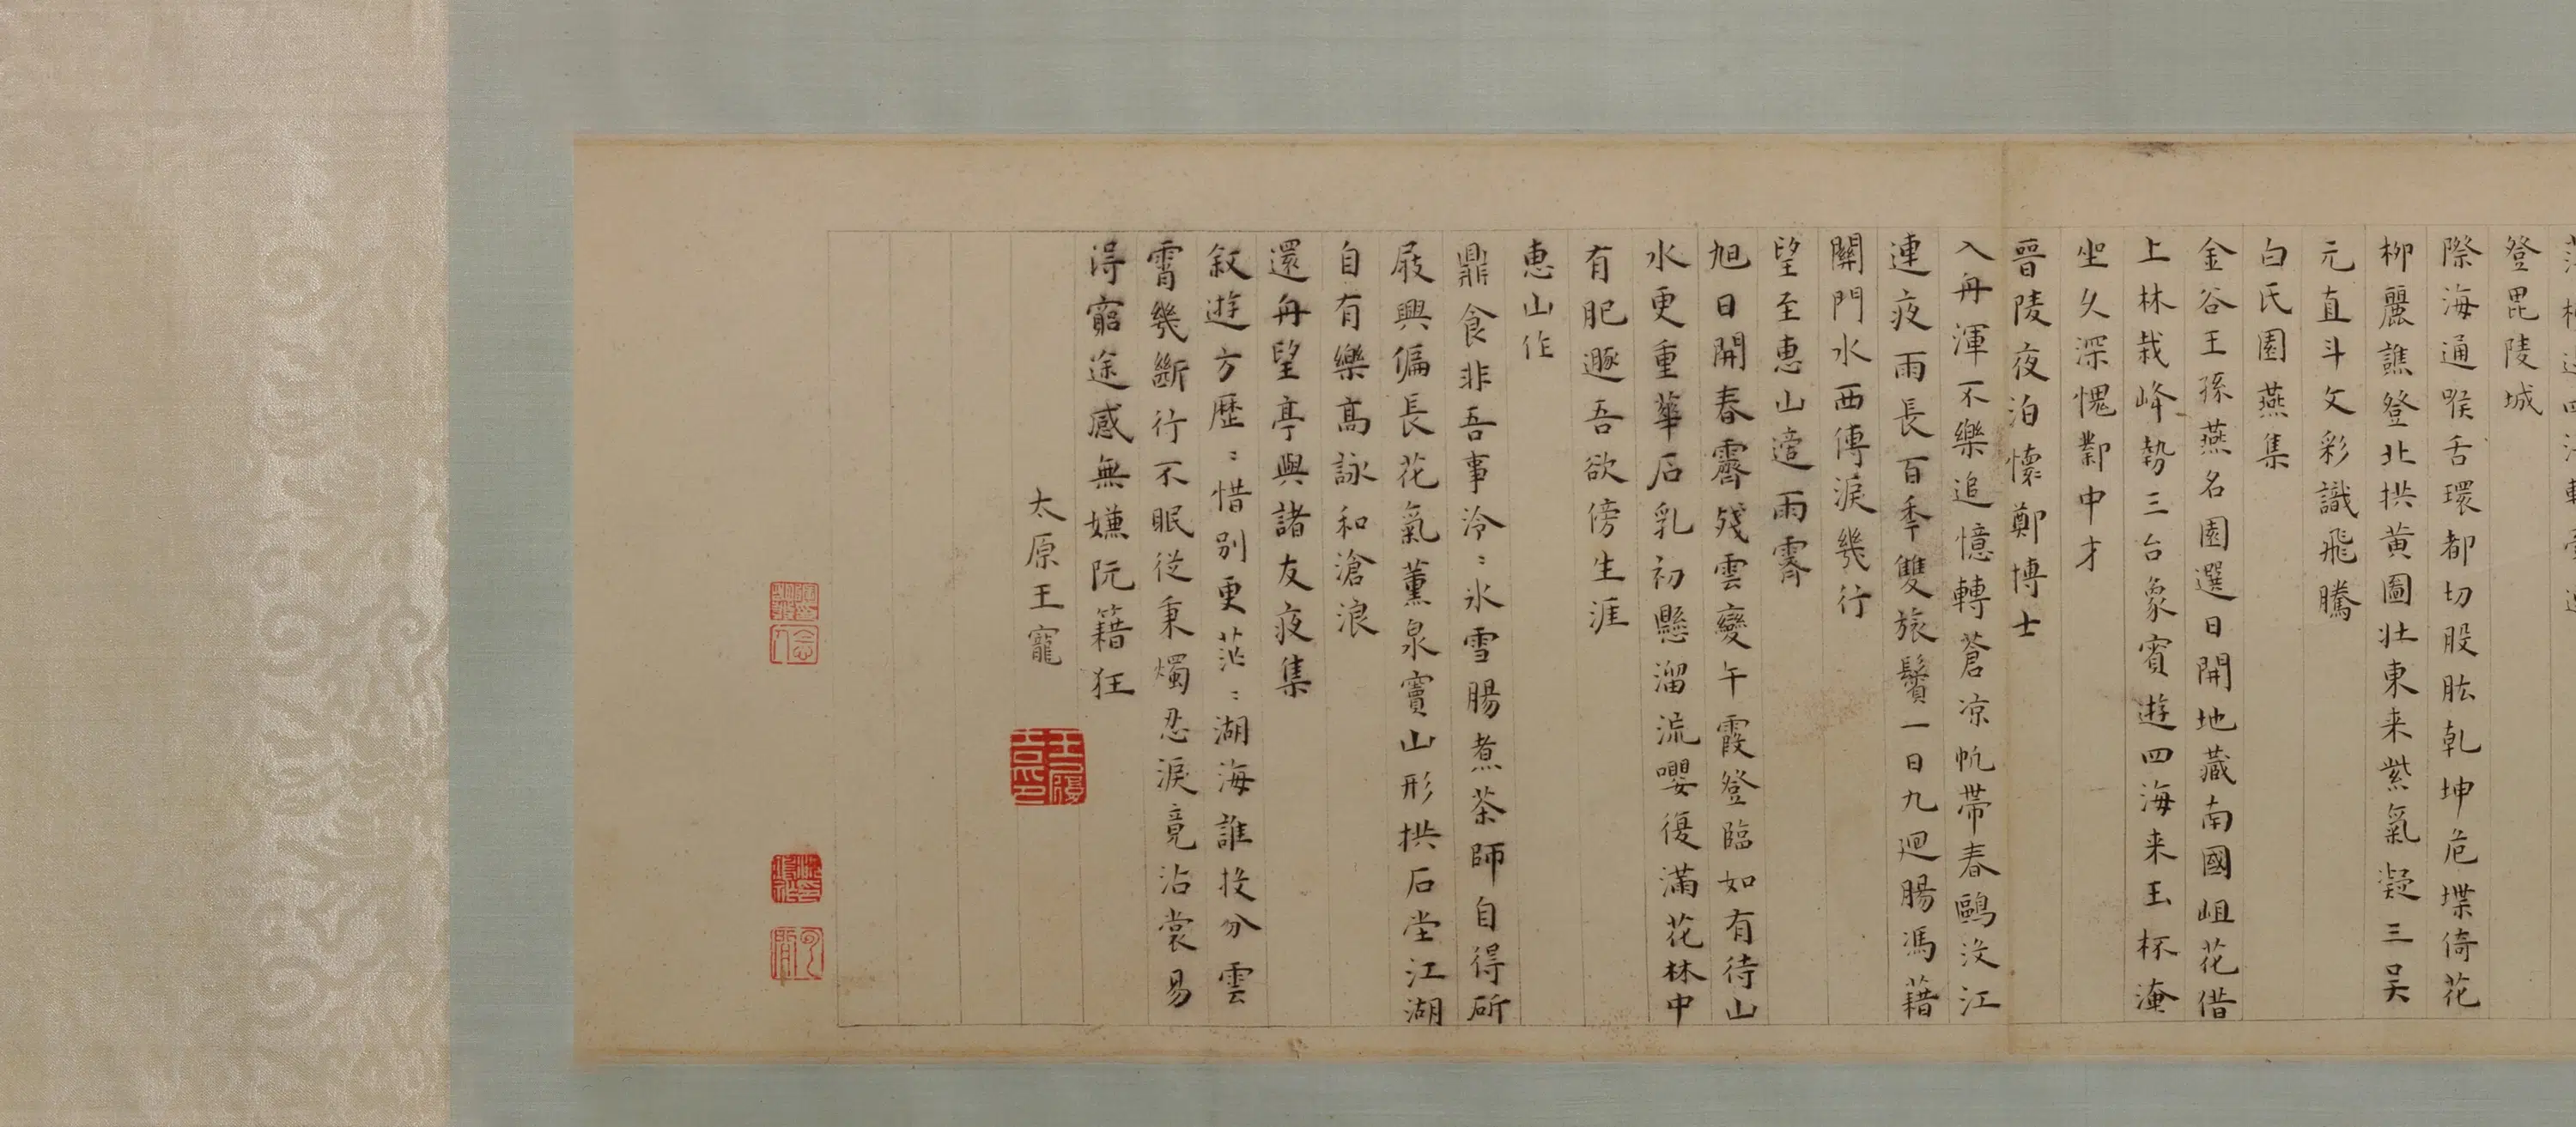 登毘陵城
際海通喉舌環都切股肱乹坤危堞倚花
柳麗譙登北拱黄圖壮東来紫氣凝三吴
元直斗文彩識飛騰
白氏園燕集
金谷王孫燕名園選日開地藏南國岨花借
上林栽峰勢三台象賓遊四海来玉杯淹
坐久深愧鄴中才
晉陵夜泊懷鄭博士
入舟渾不樂追憶轉蒼凉帆帯春鷗没江
連夜雨長百季雙旅鬢一日九迴腸馮藉
關門水西傳淚幾行
望至惠山遶雨霽
旭日開春霽殘雲變午霞登臨如有待山
水更重華石乳初懸溜流嚶復滿花林中
有肥遯吾欲傍生涯
惠山作
鼎食非吾事泠〻氷雪腸煮茶師自得斫
屐興偏長花氣薰泉竇山形拱石堂江湖
自有樂高詠和滄浪
還舟望亭與諸友夜集
叙遊方歴〻惜别更茫〻湖海誰投分雲
霄幾斷行不眠従秉燭忍淚竟沾裳易
得窮途感無嫌阮籍狂
太原王寵
王履吉印